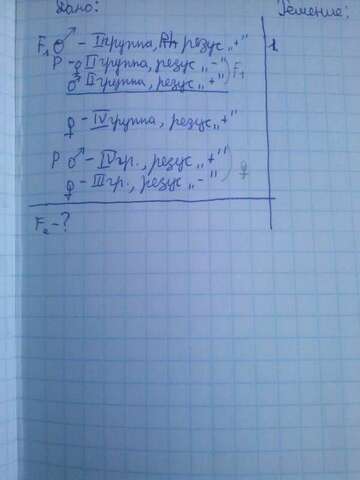 Дано:
Решение:
F₁ ♂ – I группа, Rh резус „+"
P – ♀ II группа, резус „–"
F₁
♂ II группа, резус „+"
♀ – IV группа, резус „+"
P ♂ – IV гр., резус „+"
♀
♀ – III гр., резус „–"
F₂ – ?
1